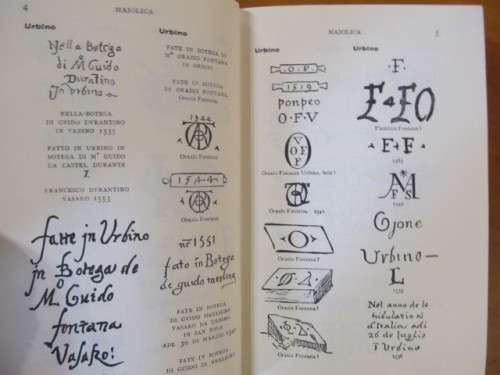 4
MAJOLICA
Urbino
Nella Botega
di Mº Guido
Durantino
In Urbino
NELLA-BOTEGA
DI GUIDO DVRANTINO
IN VASINO 1535
FATTO IN URBINO IN
BOTEGA DI Mº GUIDO
DA CASTEL DURANTE
FRANCESCO DVRANTINO
VASARO 1553
fatte in Urbino
in Botega de
Mº Guido
fontana
Vasaro!
Urbino
FATE IN BOTEGA DI
Mº ORAZIO FONTANA
FATE IN BOTEGA
DI ORAZIO FONTANA
Orazio Fontana
1544
Orazio Fontana
1544
Orazio Fontana
nel 1551
fato in Botega
de guido
FATE IN BOTEGA
VASARO DA URBINO
IN SAN POLO
ADI 30 DI MARZO
FATE IN BOTEGA
MAJOLICA
5
Urbino
O·F·V
1519
ponpeo
O·F·V
Orazio Fontana Urbino, fecit?
Orazio Fontana,
Orazio Fontana?
Orazio Fontana?
Orazio Fontana?
Urbino
·F·
F+FO
Flaminio Fontana?
·F+F·
Gjone
Urbino
L
1535
Nel anno de le
tribulationi
d'Italia adi
26 de luglio
I Urbino
1536